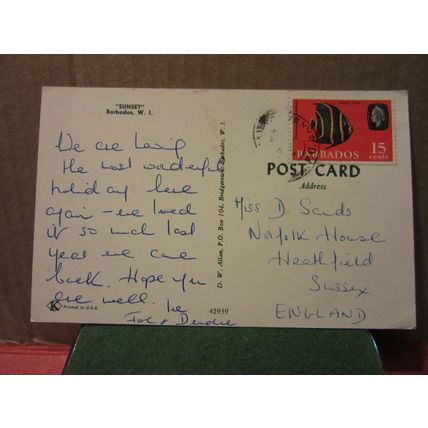 "SUNSET"
Barbados, W. I.
We are having
the most wonderful
holiday here
again – we loved
it so much last
year we came
back. Hope you
are well.
& Deirdre
K Printed in U.S.A.
45939
D. W. Allan, P.O. Box 104, Bridgetown, Barbados, W. I.
BARBADOS
15
cents
POST CARD
Address
Miss D. Sands
Norfolk House
Heathfield
Sussex
ENGLAND